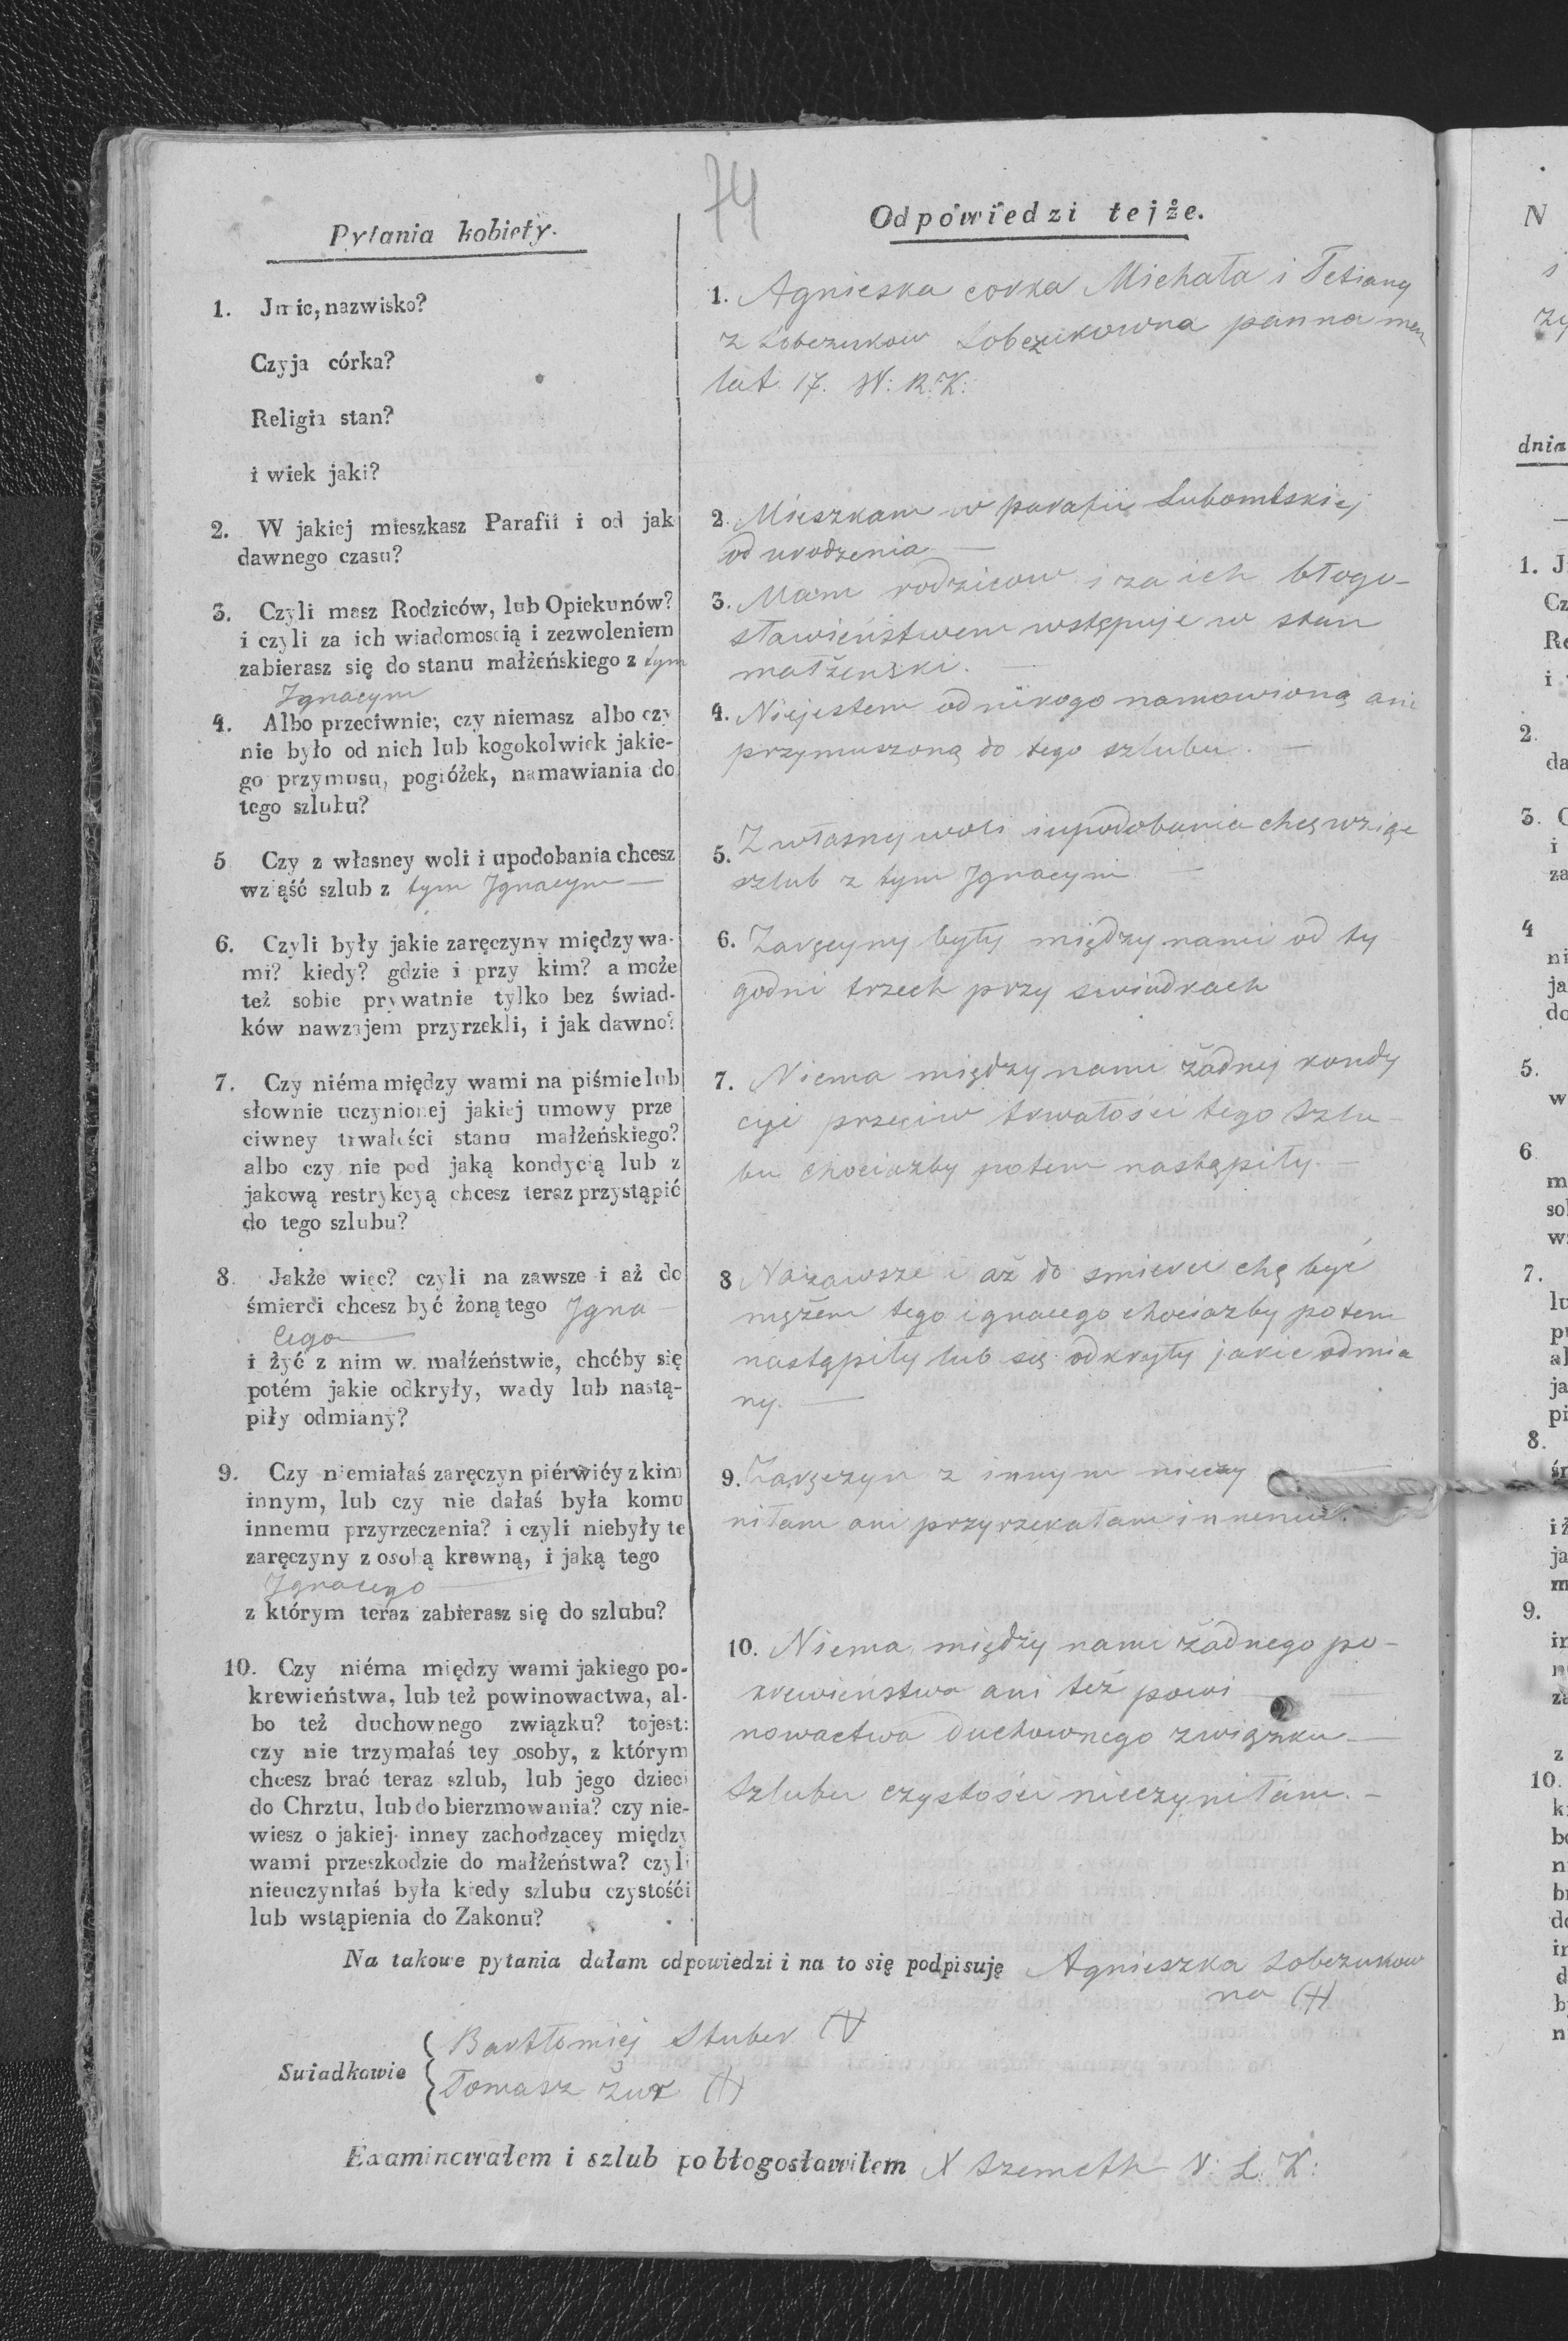 74
Pytania kobiety.
1. Jmie, nazwisko?
Czyja córka?
Religia stan?
i wiek jaki?
2. W jakiej mieszkasz Parafii i od jak
dawnego czasu?
3. Czyli masz Rodziców, lub Opiekunów?
i czyli za ich wiadomoscią i zezwoleniem
zabierasz się do stanu małżeńskiego z tym
Ignacym
4. Albo przeciwnie; czy niemasz albo czy
nie było od nich lub kogokolwiek jakie-
go przymusu, pogróżek, namawiania do
tego szlubu?
5 Czy z własney woli i upodobania chcesz
wziąść szlub z tym Ignacym —
6. Czyli były jakie zaręczyny między wa-
mi? kiedy? gdzie i przy kim? a może
też sobie prywatnie tylko bez świad-
ków nawzajem przyrzekli, i jak dawno?
7. Czy niéma między wami na piśmie lub
słownie uczynionej jakiej umowy prze
ciwney trwałości stanu małżeńskiego?
albo czy nie pod jaką kondycią lub z
jakową restrykcyą chcesz teraz przystąpić
do tego szlubu?
8. Jakże więc? czyli na zawsze i aż do
śmierci chcesz być żoną tego Igna
cego —
i żyć z nim w. małżeństwie, choćby się
potém jakie odkryły, wady lub nastą-
piły odmiany?
9. Czy niemiałaś zaręczyn piérwiéy z kim
innym, lub czy nie dałaś była komu
innemu przyrzeczenia? i czyli niebyły te
zaręczyny z osobą krewną, i jaką tego
Ignacego —
z którym teraz zabierasz się do szlubu?
10. Czy niéma między wami jakiego po-
krewieństwa, lub też powinowactwa, al-
bo też duchownego związku? tojest:
czy nie trzymałaś tey osoby, z którym
chcesz brać teraz szlub, lub jego dzieci
do Chrztu, lub do bierzmowania? czy nie-
wiesz o jakiej inney zachodzącey między
wami przeszkodzie do małżeństwa? czyli
nieuczyniłaś była kiedy szlubu czystośći
lub wstąpienia do Zakonu?
Odpowiedzi tejże.
1. Agnieska corka Michała i Tetiany
z Lobczukow Lobczukowna panna
lat 17. W: R: K:
2. Mieszkam w parafii Lubomlskiej
od urodzenia —
3. Mam rodzicow i za ich błogo-
sławieństwem wstępuje w stan
małżenski. —
4. Niejestem od nikogo namowioną ani
przymuszoną do tego szlubu. —
5. Z własnej woli i upodobania chcę wziąc
szlub z tym Ignacym —
6. Zaręcyny były między nami od ty
godni trzech przy swiadkach
7. Niema między nami żadnej kondy
cyi przeciw trwałości tego szlu-
bu chociazby potem nastąpiły. —
8 Nazawsze i aż do smierci chę być
mężem tego ignacego chociazby potem
nastąpiły lub się odkryły jakie odmia
ny. —
9. Zaręczyn z innym nieczy
niłam ani przyrzekałam innemu.
10. Niema między nami żadnego po-
krewieństwa ani też powi
nowactwa duchownego związku —
Szlubu czystości nieczyniłam. —
Na takowe pytania dałam odpowiedzi i na to się podpisuję Agnieszka Lobczukow
na (+)
Swiadkowie
Bartłomiej Stuber (+)
Tomasz Żuk (+)
Examinowałem i szlub pobłogosławiłem X Szemeth